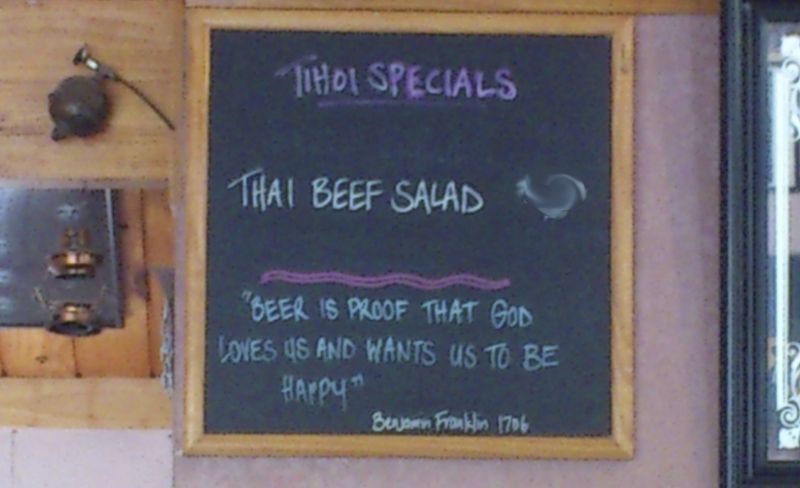 TIHOI SPECIALS
THAI BEEF SALAD
"BEER IS PROOF THAT GOD
LOVES US AND WANTS US TO BE
HAPPY"
Benjamin Franklin 1706